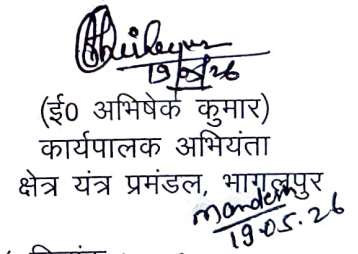 19/05/26
(ई0 अभिषेक कुमार)
कार्यपालक अभियंता
क्षेत्र यंत्र प्रमंडल, भागलपुर
19.05.26